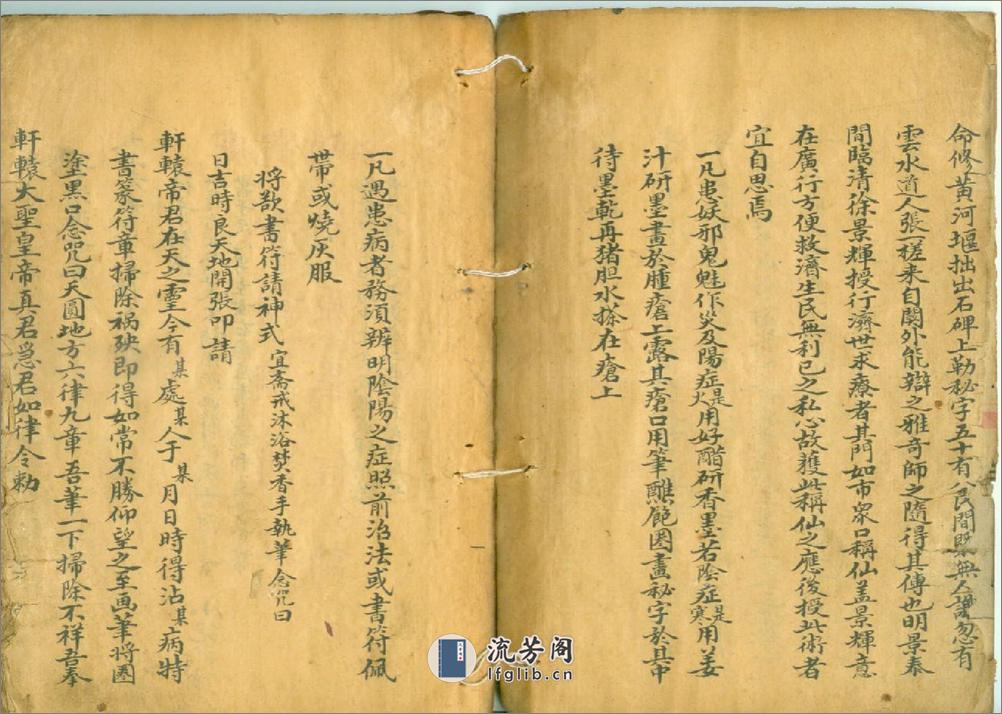 命修黄河堰拙出石碑上勒秘字五十有八民間既無人識忽有
雲水道人張槎来自関外能辯之雅奇師之隨得其傳也明景泰
間臨清徐景輝授行濟世求療者其門如市眾口稱仙盖景輝意
在廣行方便救濟生民無利已之私心故獲此稱仙之應後授此術者
宜自思焉
一凡患妖邪鬼魅作災及陽症是火用好醋研香墨若陰症是寒用姜
汁研墨畫於腫瘡上露其瘡口用筆蘸範圈畫秘字於其中
待墨乾再猪胆水搽在瘡上
一凡遇患病者務須辨明陰陽之症照前治法或書符佩
帶或燒灰服
将欲書符請神式 宜齋戒沐浴焚香手執筆念咒曰
日吉時良天地開張叩請
軒轅帝君在天之靈今有某處某人于某月日時得沾某病特
書篆符章掃除祸殃即得如常不勝仰望之至画筆将圈
塗黑口念咒曰天圓地方六律九章吾筆一下掃除不祥吾奉
軒轅大聖皇帝真君急君如律令勅
流芳阁
lfglib.cn